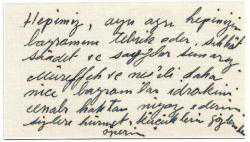 Hepinizi, ayrı ayrı hepinizin
bayramını tebrik eder, sıhhat
saadet ve saygılar sunarız
Müreffeh ve mes'ut daha
nice bayramların idrakini
cenabı haktan niyaz ederim
sizlere hürmet, küçüklerin gözlerinden
öperim